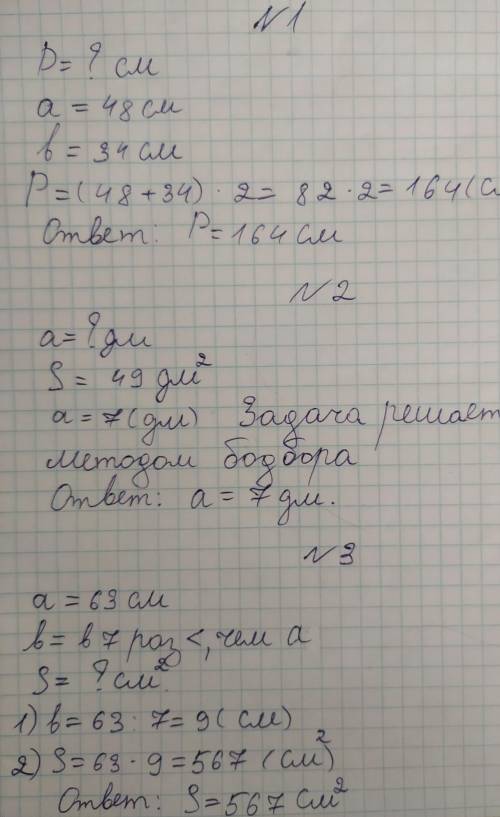 №1
P = ? см
a = 48 см
b = 34 см
P = (48 + 34) · 2 = 82 · 2 = 164 (с
Ответ: P = 164 см
№2
a = ? дм
S = 49 дм²
a = 7 (дм) Задача решает
методом бодбора
Ответ: a = 7 дм.
№3
a = 63 см
b = в 7 раз <, чем a
S = ? см².
1) b = 63 : 7 = 9 (см)
2) S = 63 · 9 = 567 (см²)
Ответ: S = 567 см²